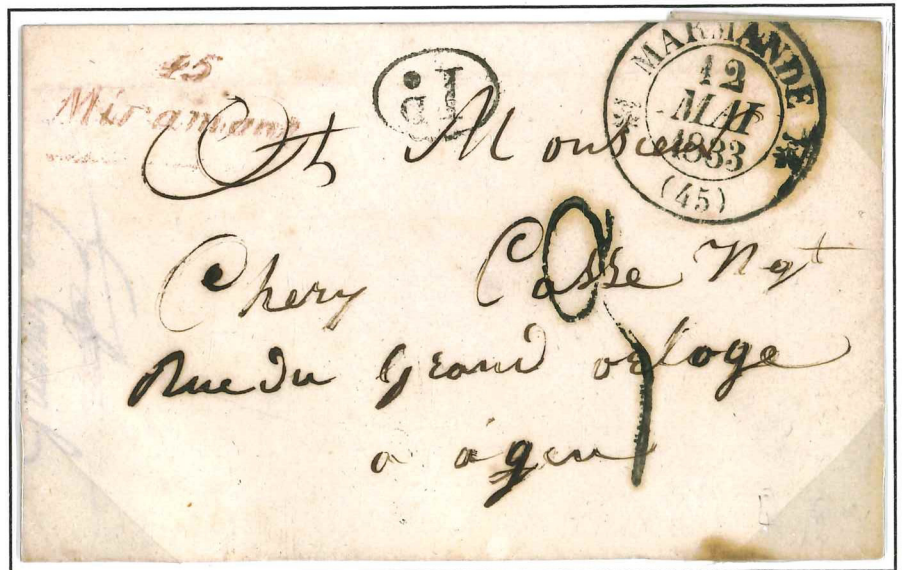 45
Miramont
1D
MARMANDE
12
MAI
1833
(45)
A Monsieur
Chery Casse Negt
Rue du Grand orloge
a agen